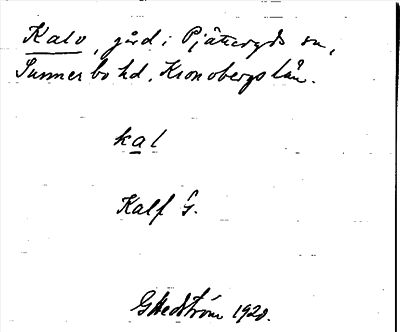 Kalv, gård i Pjätteryds sn,
Sunnerbo hd, Kronobergs län.
kal
Kalf G.
G Hedström 1920.